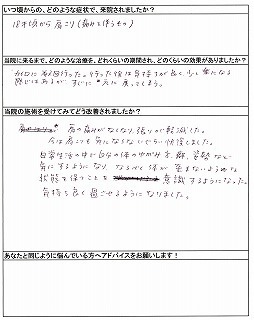 いつ頃からの、どのような症状で、来院されましたか？
18才頃から肩こり(痛みを伴うもの)
当院に来るまで、どのような治療を、どれくらいの期間され、どのくらいの効果がありましたか？
行った後は気持ちが良く、少し楽になる
感じはあるが、すぐに元に戻ってしまう。
当院の施術を受けてみてどう改善されましたか？
肩の痛みがなくなり張りが軽減した。
今は肩こりも気にならないぐらい快復しました。
日常生活の中で自分の体のゆがみ、癖、姿勢など
気にするようになり、なるべく体が歪まないような
状態を保つことを意識するようになった。
気持ち良く過ごせるようになりました。
あなたと同じように悩んでいる方へアドバイスをお願いします！